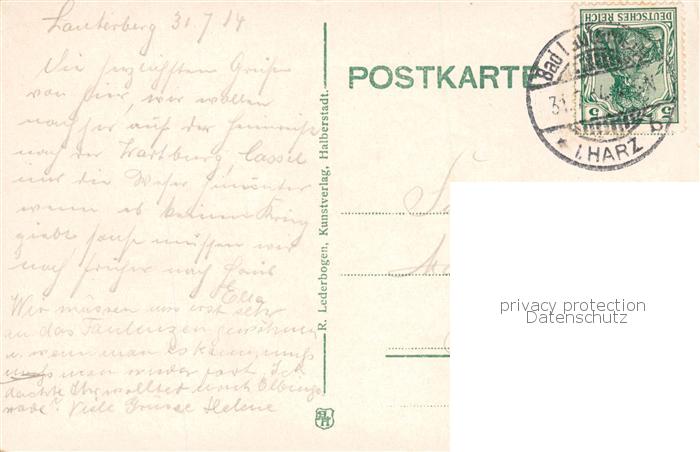 Lauterberg 31.7.14
Die herzlichsten Grüße
von hier, wir wollen
nachher auf der Heimreise
nach der Wartburg Cassel
und die Weser hinunter
wenn es keinen Krieg
giebt sonst müssen wir
noch früher nach Haus
Ella
Wir müssen uns erst sehr
an das Faulenzen gewöhnen
u. wenn man es kann, muß
man wieder fort. Ich
dachte Ihr wolltet nach
Viele Grüsse Helene
R. Lederbogen, Kunstverlag, Halberstadt.
POSTKARTE
DEUTSCHES REICH
5
5
Bad
31.
* I. HARZ
privacy protection
Datenschutz